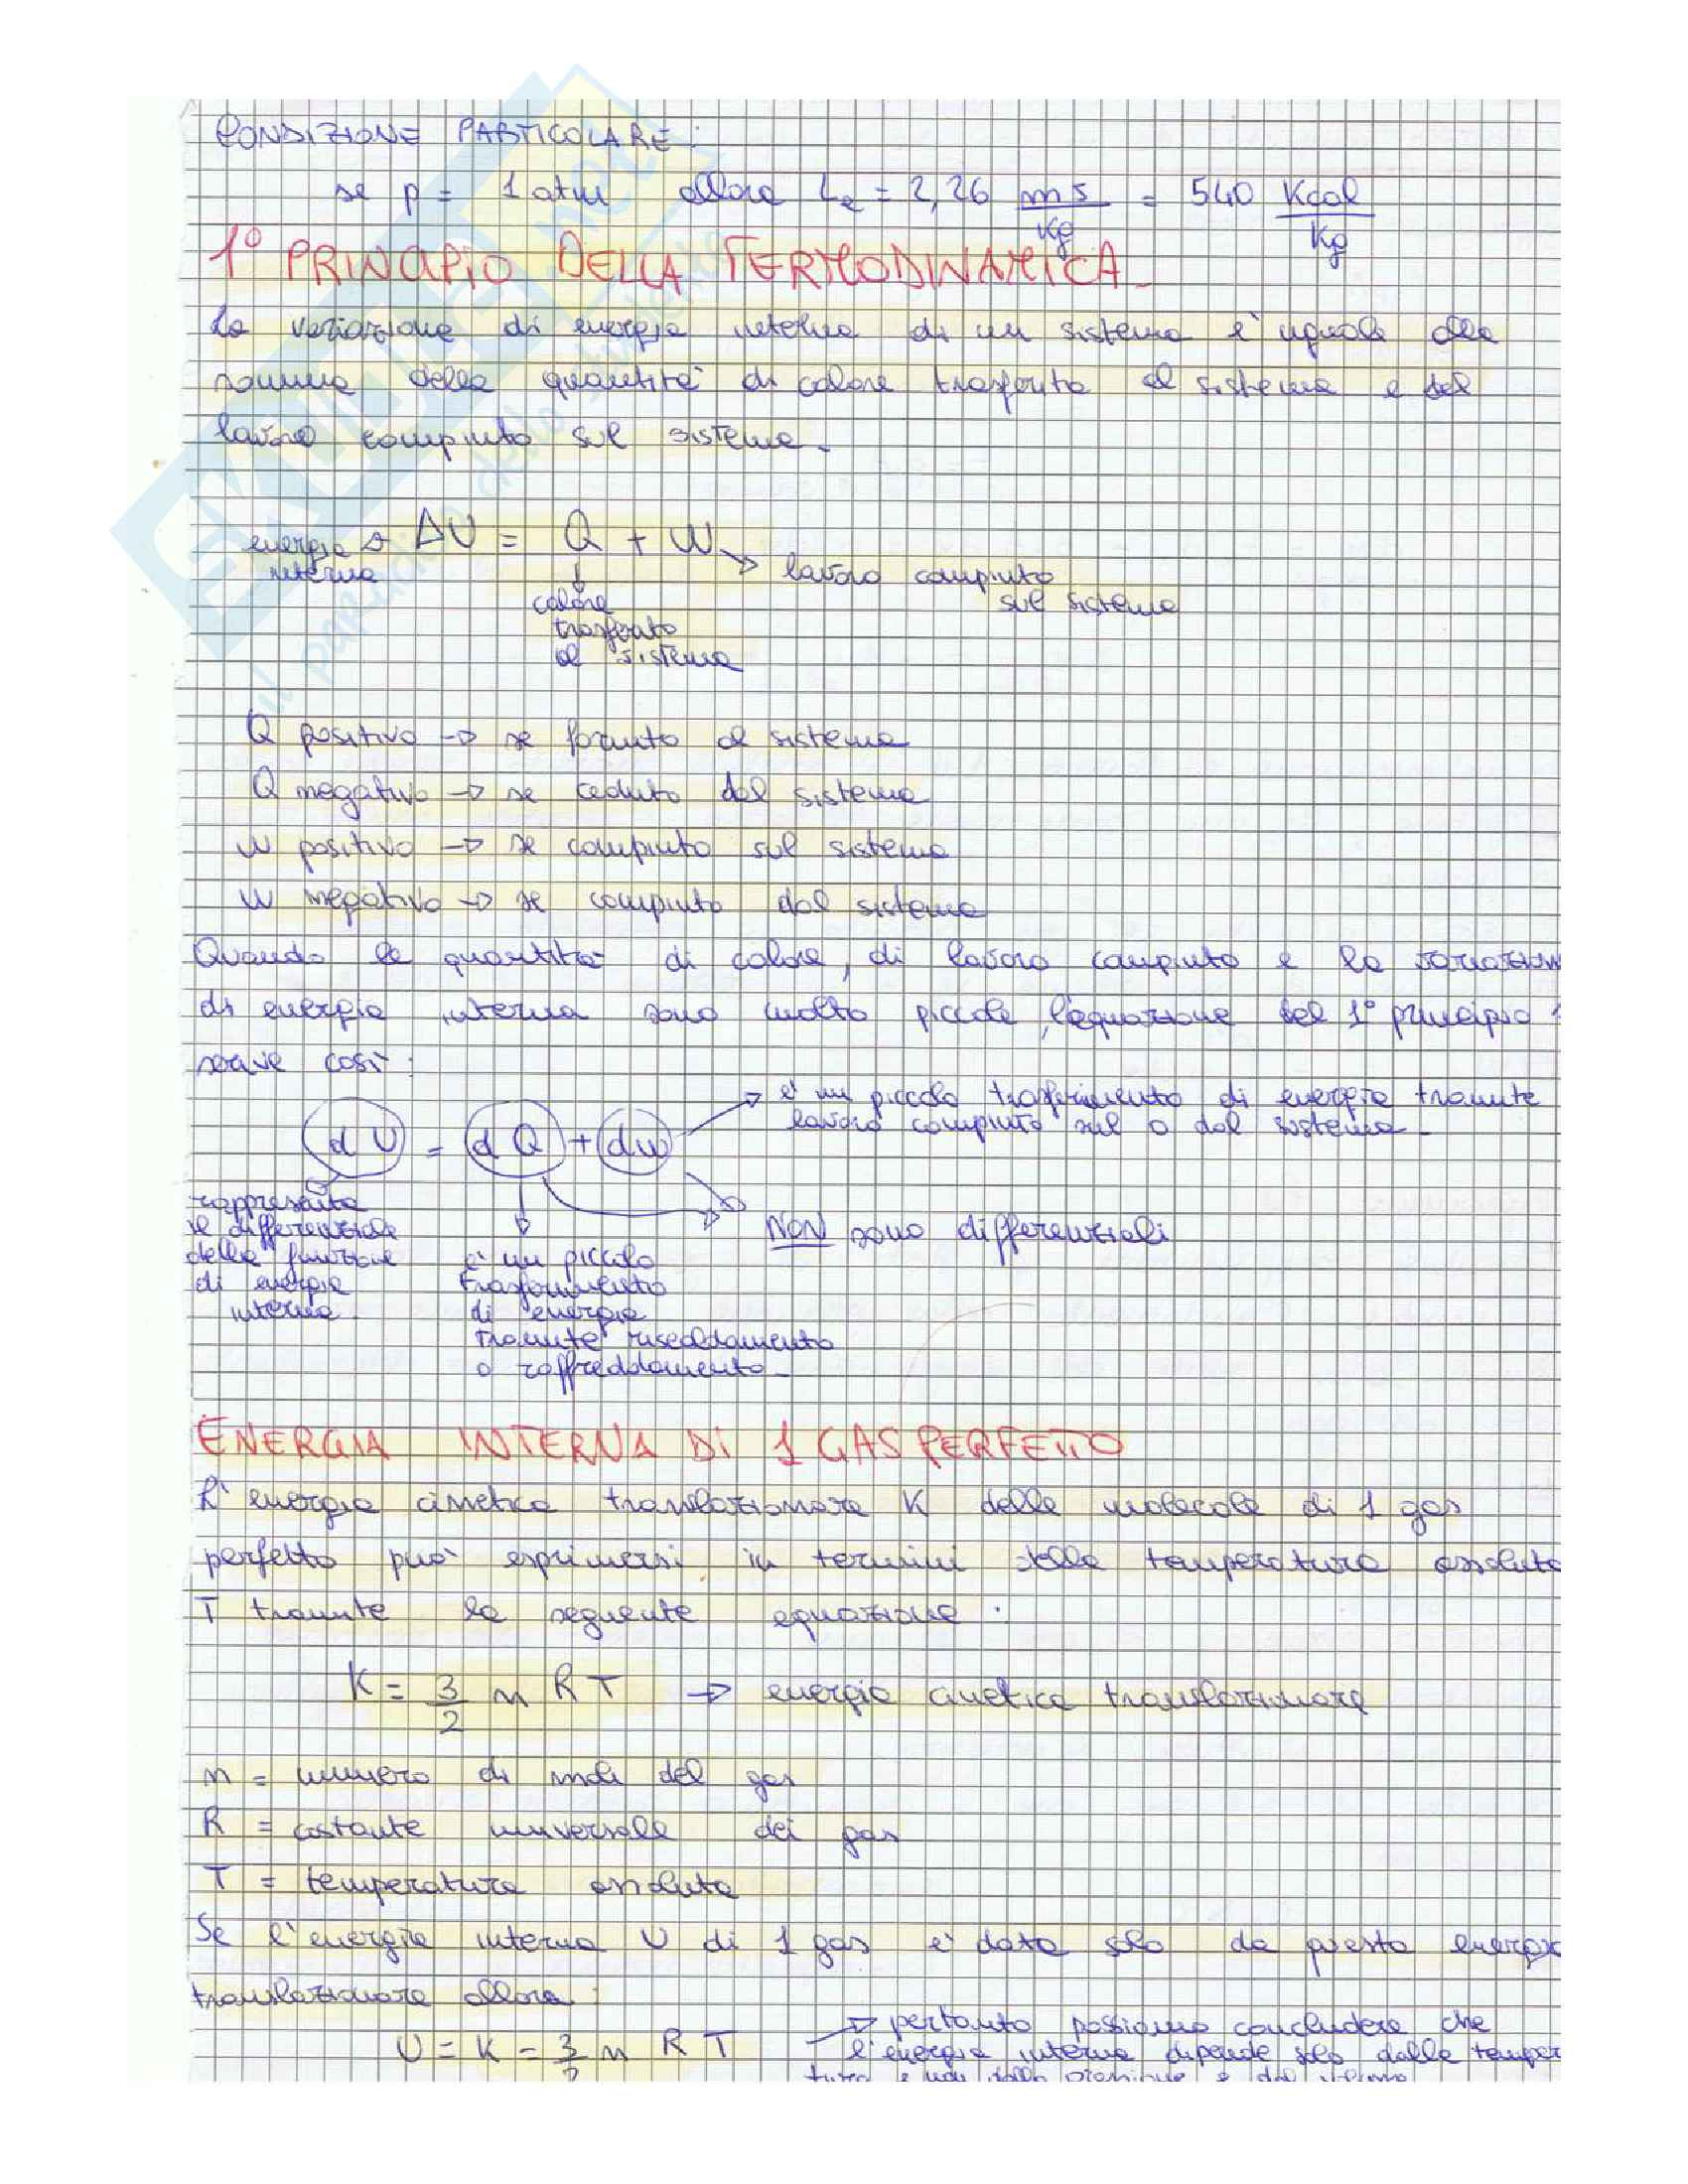 CONDIZIONE PARTICOLARE:
se p = 1 atm allora Le = 2,26 mJ/Kg = 540 Kcal/Kg
1° PRINCIPIO DELLA TERMODINAMICA
La variazione di energia interna di un sistema è uguale alla
somma della quantità di calore trasferita al sistema e del
lavoro compiuto sul sistema.
energia interna → ΔU = Q + W → lavoro compiuto
sul sistema
calore
trasferito
al sistema
Q positivo → se fornito al sistema
Q negativo → se ceduto dal sistema
W positivo → se compiuto sul sistema
W negativo → se compiuto dal sistema
Quando le quantità di calore, di lavoro compiuto e la variazion
di energia interna sono molto piccole, l'equazione del 1° principio
scrive così:
è un piccolo trasferimento di energia tramite
lavoro compiuto sul o dal sistema.
dU = dQ + dW
NON sono differenziali
rappresenta
il differenziale
della funzione
di energia
interna.
è un piccolo
trasferimento
di energia
tramite riscaldamento
o raffreddamento.
ENERGIA INTERNA DI 1 GAS PERFETTO
L'energia cinetica translazionare K delle molecole di 1 gas
perfetto può esprimersi in termini della temperatura assoluta
T tramite la seguente equazione:
K = 3/2 n R T → energia cinetica translazionare
n = numero di moli del gas
R = costante universale dei gas
T = temperatura assoluta
Se l'energia interna U di 1 gas è data solo da questa energia
translazionare allora:
U = K = 3/2 n R T → pertanto possiamo concludere che
l'energia interna dipende solo dalla temper